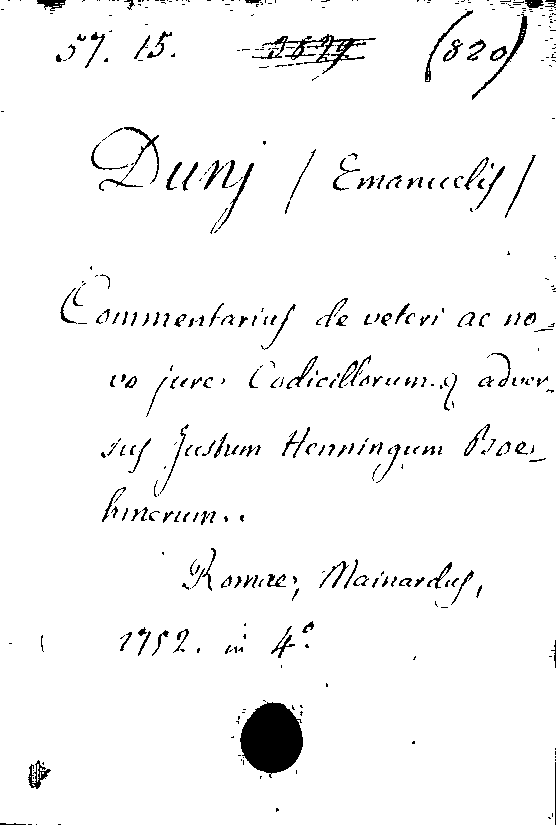 57. 15. 3829 (820)
Dunj / Emanuelis /
Commentarius de veteri ac no-
vo jure Codicillorum adver-
sus Justum Henningum Boe-
hmerum..
Romae, Mainardus,
1752. in 4º.